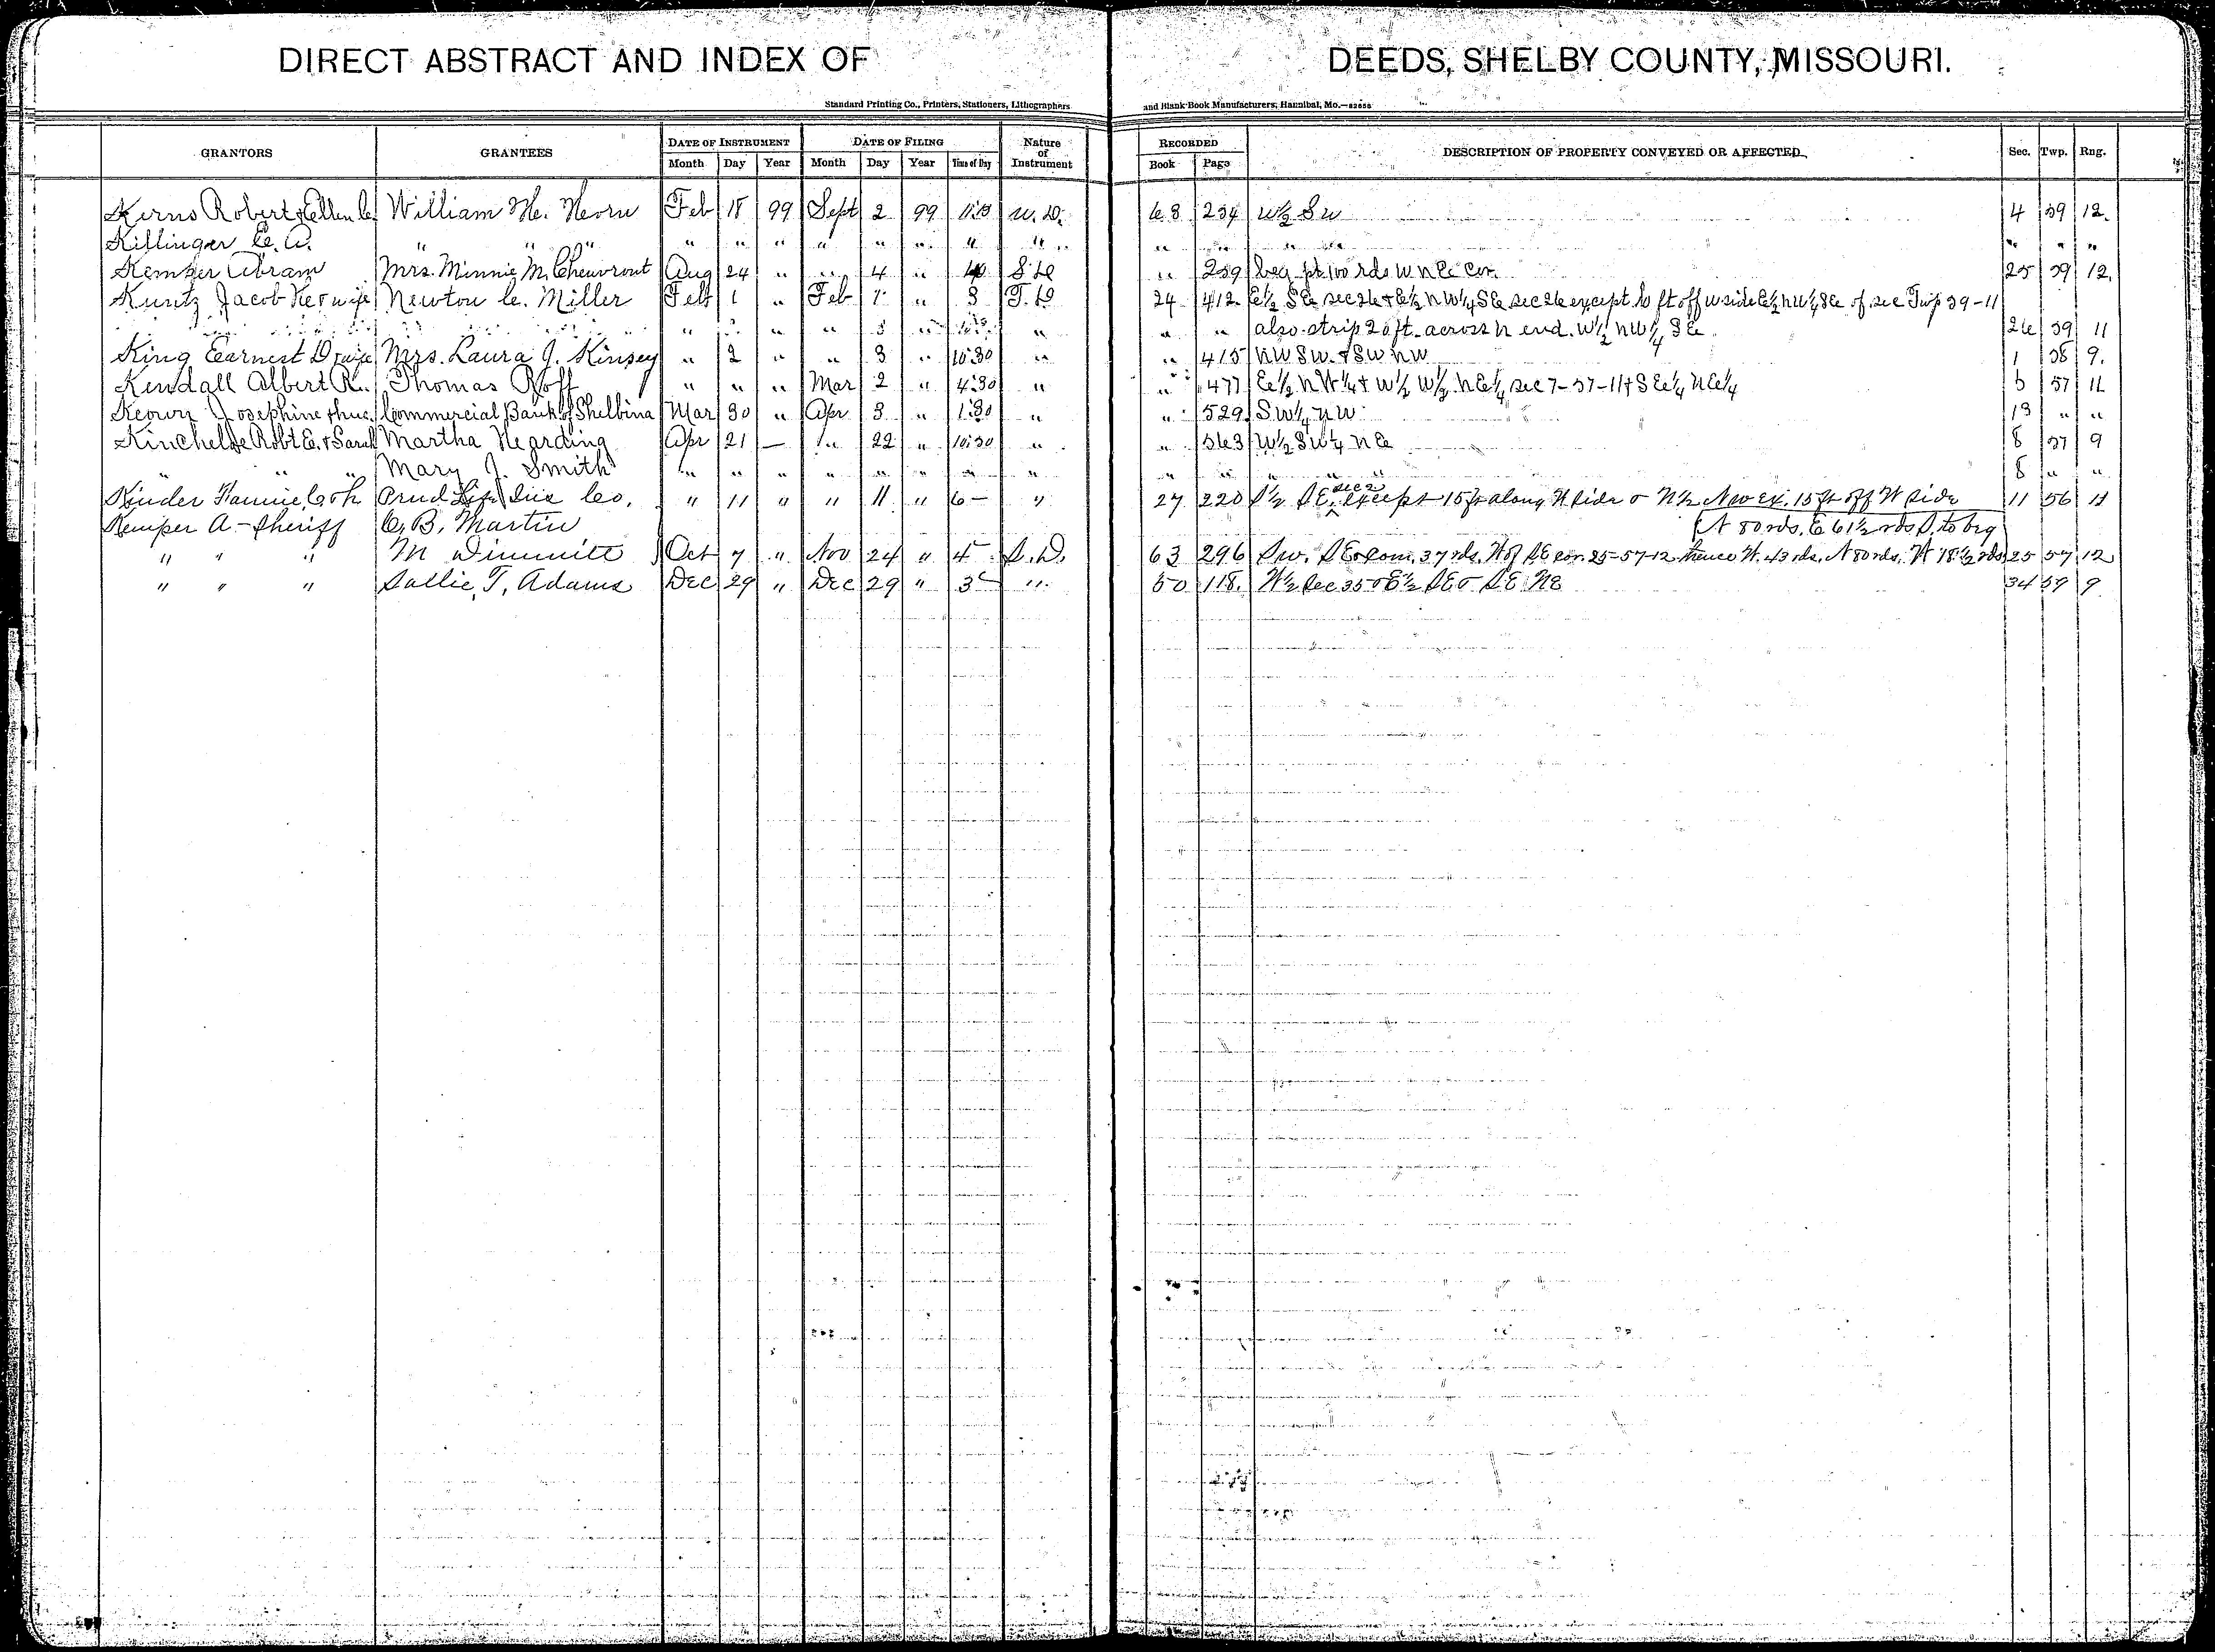 DIRECT ABSTRACT AND INDEX OF DEEDS, SHELBY COUNTY, MISSOURI.
Standard Printing Co., Printers, Stationers, Lithographers and Blank Book Manufacturers, Hannibal, Mo.—82656
GRANTORS GRANTEES DATE OF INSTRUMENT Month Day Year DATE OF FILING Month Day Year Time of Day Nature of Instrument RECORDED Book Page DESCRIPTION OF PROPERTY CONVEYED OR AFFECTED Sec. Twp. Rng.
Kerns Robert & Ellen C. William H. Horn Feb 18 99 Sept 2 99 W.D. 63 234 W½ SW 4 59 12.
Killinger E. A. " " " " " " " " " " " " " " " " " " "
Kemper Abram Mrs. Minnie M. Cheuvront Aug 24 " " 4 " S.D " 239 beg pt 100 rds W NE Cor. 25 59 12.
Kuntz Jacob K & wife Newton C. Miller Feb 1 " Feb " 3 T.D 24 412 E½ SE sec 26 & E½ NW¼ SE sec 26 except ft off W side E½ NW¼ SE of sec Twp 59-11
" " 3 " " " " also strip 20 ft. across N end. W½ NW¼ SE 26 59 11
King Earnest D & wife Mrs. Laura J. Kinsey " 2 " " 3 " 10:30 " " 415 NW SW. & SW NW 1 58 9.
Kendall Albert R. Thomas Roff " " " Mar 2 " 4:30 " " 477 E½ NW¼ & W½ W½ NE¼ sec 7-57-11 & SE¼ NE¼ 57 11
Keown Josephine & hus. Commercial Bank of Shelbina Mar 30 " Apr 3 " 1:30 " " 529 SW¼ NW 13 " "
Kincheloe Robt E. & Sarah Martha Hearding Apr 21 — " 22 " 10:30 " " 563 W½ SW¼ NE 8 57 9
" " " Mary J. Smith " " " " " " " " " " " " 8 " "
Kinder Fannie C & h Prud Life Ins Co. " 11 " " 11 " 6- " 27 220 S½ SE. sec 2 except 15 ft along W side & N½ NW ex. 15 ft off W side 11 56 11
Kemper A - Sheriff C. B. Martin
N 80 rds. E 61½ rds S. to beg
" " " M Dimmitt Oct 7 " Nov 24 " 4- S.D. 63 296 SW. SE & com. 37 rds. W of SE cor 25-57-12 thence W. 43 rds. N 80 rds. W 18½ rds 25 57 12
" " " Sallie T. Adams Dec 29 " Dec 29 " 3- " 50 118. W½ Sec 35 & E½ SE & SE NE 34 59 9